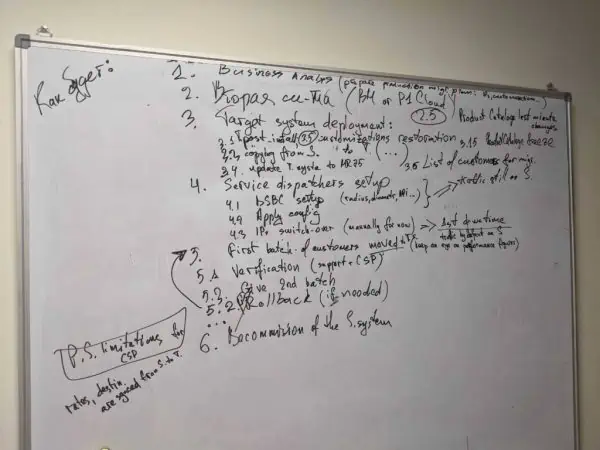 Как будет:
1. Business Analys (prepare production migr. plans: customization)
2. Вторая си-ма (BM or P1 Cloud)
2.5 Product Catalogs test migrate changes
3. Target system deployment:
3.1 post. install 3.5 customizations restoration 3.15 Product Catalog freeze
3.2 copying from S. to T. (...)
3.4. update T. syste to MR75 3.6 List of customers for mig.
4. Service dispatchers setup
4.1 bSBC setup (radius, diametr, API...) => traffic still on S.
4.2 Apply config
4.3 IPs switch-over (manually for now) => Syst downtime
traffic by default on S
5. First batch of customers moved to T. (keep an eye on performance figures)
5.1 Verification (support + CSP)
5.2. 2nd batch
5.2. Rollback (if needed)
...
6. Decommision of the S. system
P.S. limitations for CSP
rates, destin. are synced from S. to T.